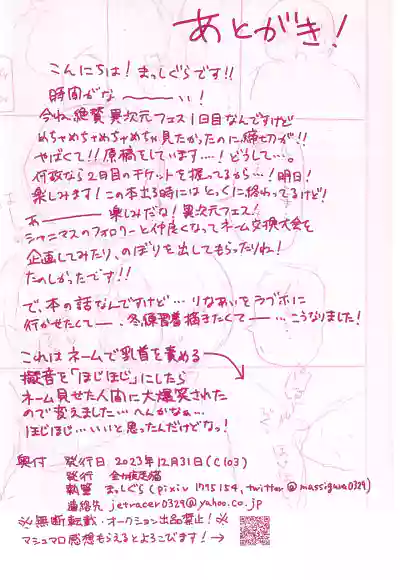 あとがき!
こんにちは! まっしぐらです!!
時間がな〜〜い!
今ね、絶賛異次元フェス1日目なんですけど
めちゃめちゃめちゃめちゃ見たかったのに締切が!!
やばくて!!原稿をしています…!どうして…。
何故なら2日目のチケットを握ってるから…!明日!
楽しみます!この本出る時にはとっくに終わってるけど!
あ――― 楽しみだな!異次元フェス!
シャニマスのフォロワーと仲良くなってネーム交換大会を
企画してみたり、のぼりを出してもらったりね!
たのしかったです!!
で、本の話なんですけど…りなあいをラブホに
行かせたくてー、冬練習着描きたくてー…こうなりました!
これはネームで乳首を責める
擬音を「ほじほじ」にしたら
ネーム見せた人間に大爆笑された
ので変えました…へんかなぁ…
ほじほじ…いいと思ったんだけどなっ!
奥付 発行日 2023年12月31日(C103)
発行
執筆 まっしぐら(pixiv 1795154, twitter @massigura0329)
連絡先 jetracer0329@yahoo.co.jp
※無断転載・オークション出品禁止!※
マシュマロ感想もらえるとよろこびます!→